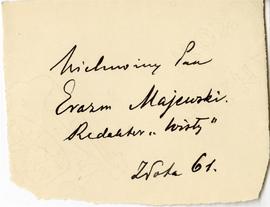 Wielmożny Pan
Erazm Majewski.
Redaktor „Wisły"
Złota 61.